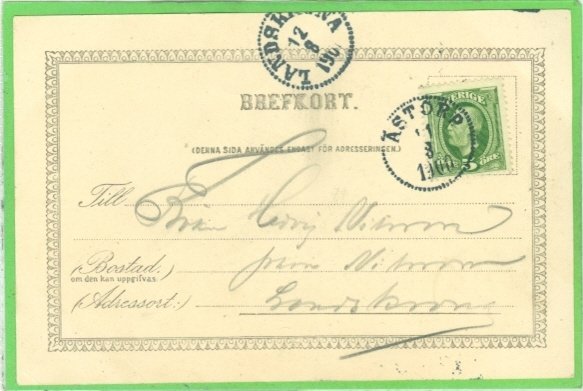 LANDSKRONA
12
8
190
BREFKORT.
SVERIGE
5 ÖRE
ÅSTORP
11
8
1900
(DENNA SIDA ANVÄNDES ENDAST FÖR ADRESSERINGEN.)
Till
(Bostad.)
om den kan uppgifvas.
(Adressort:)
Landskrona